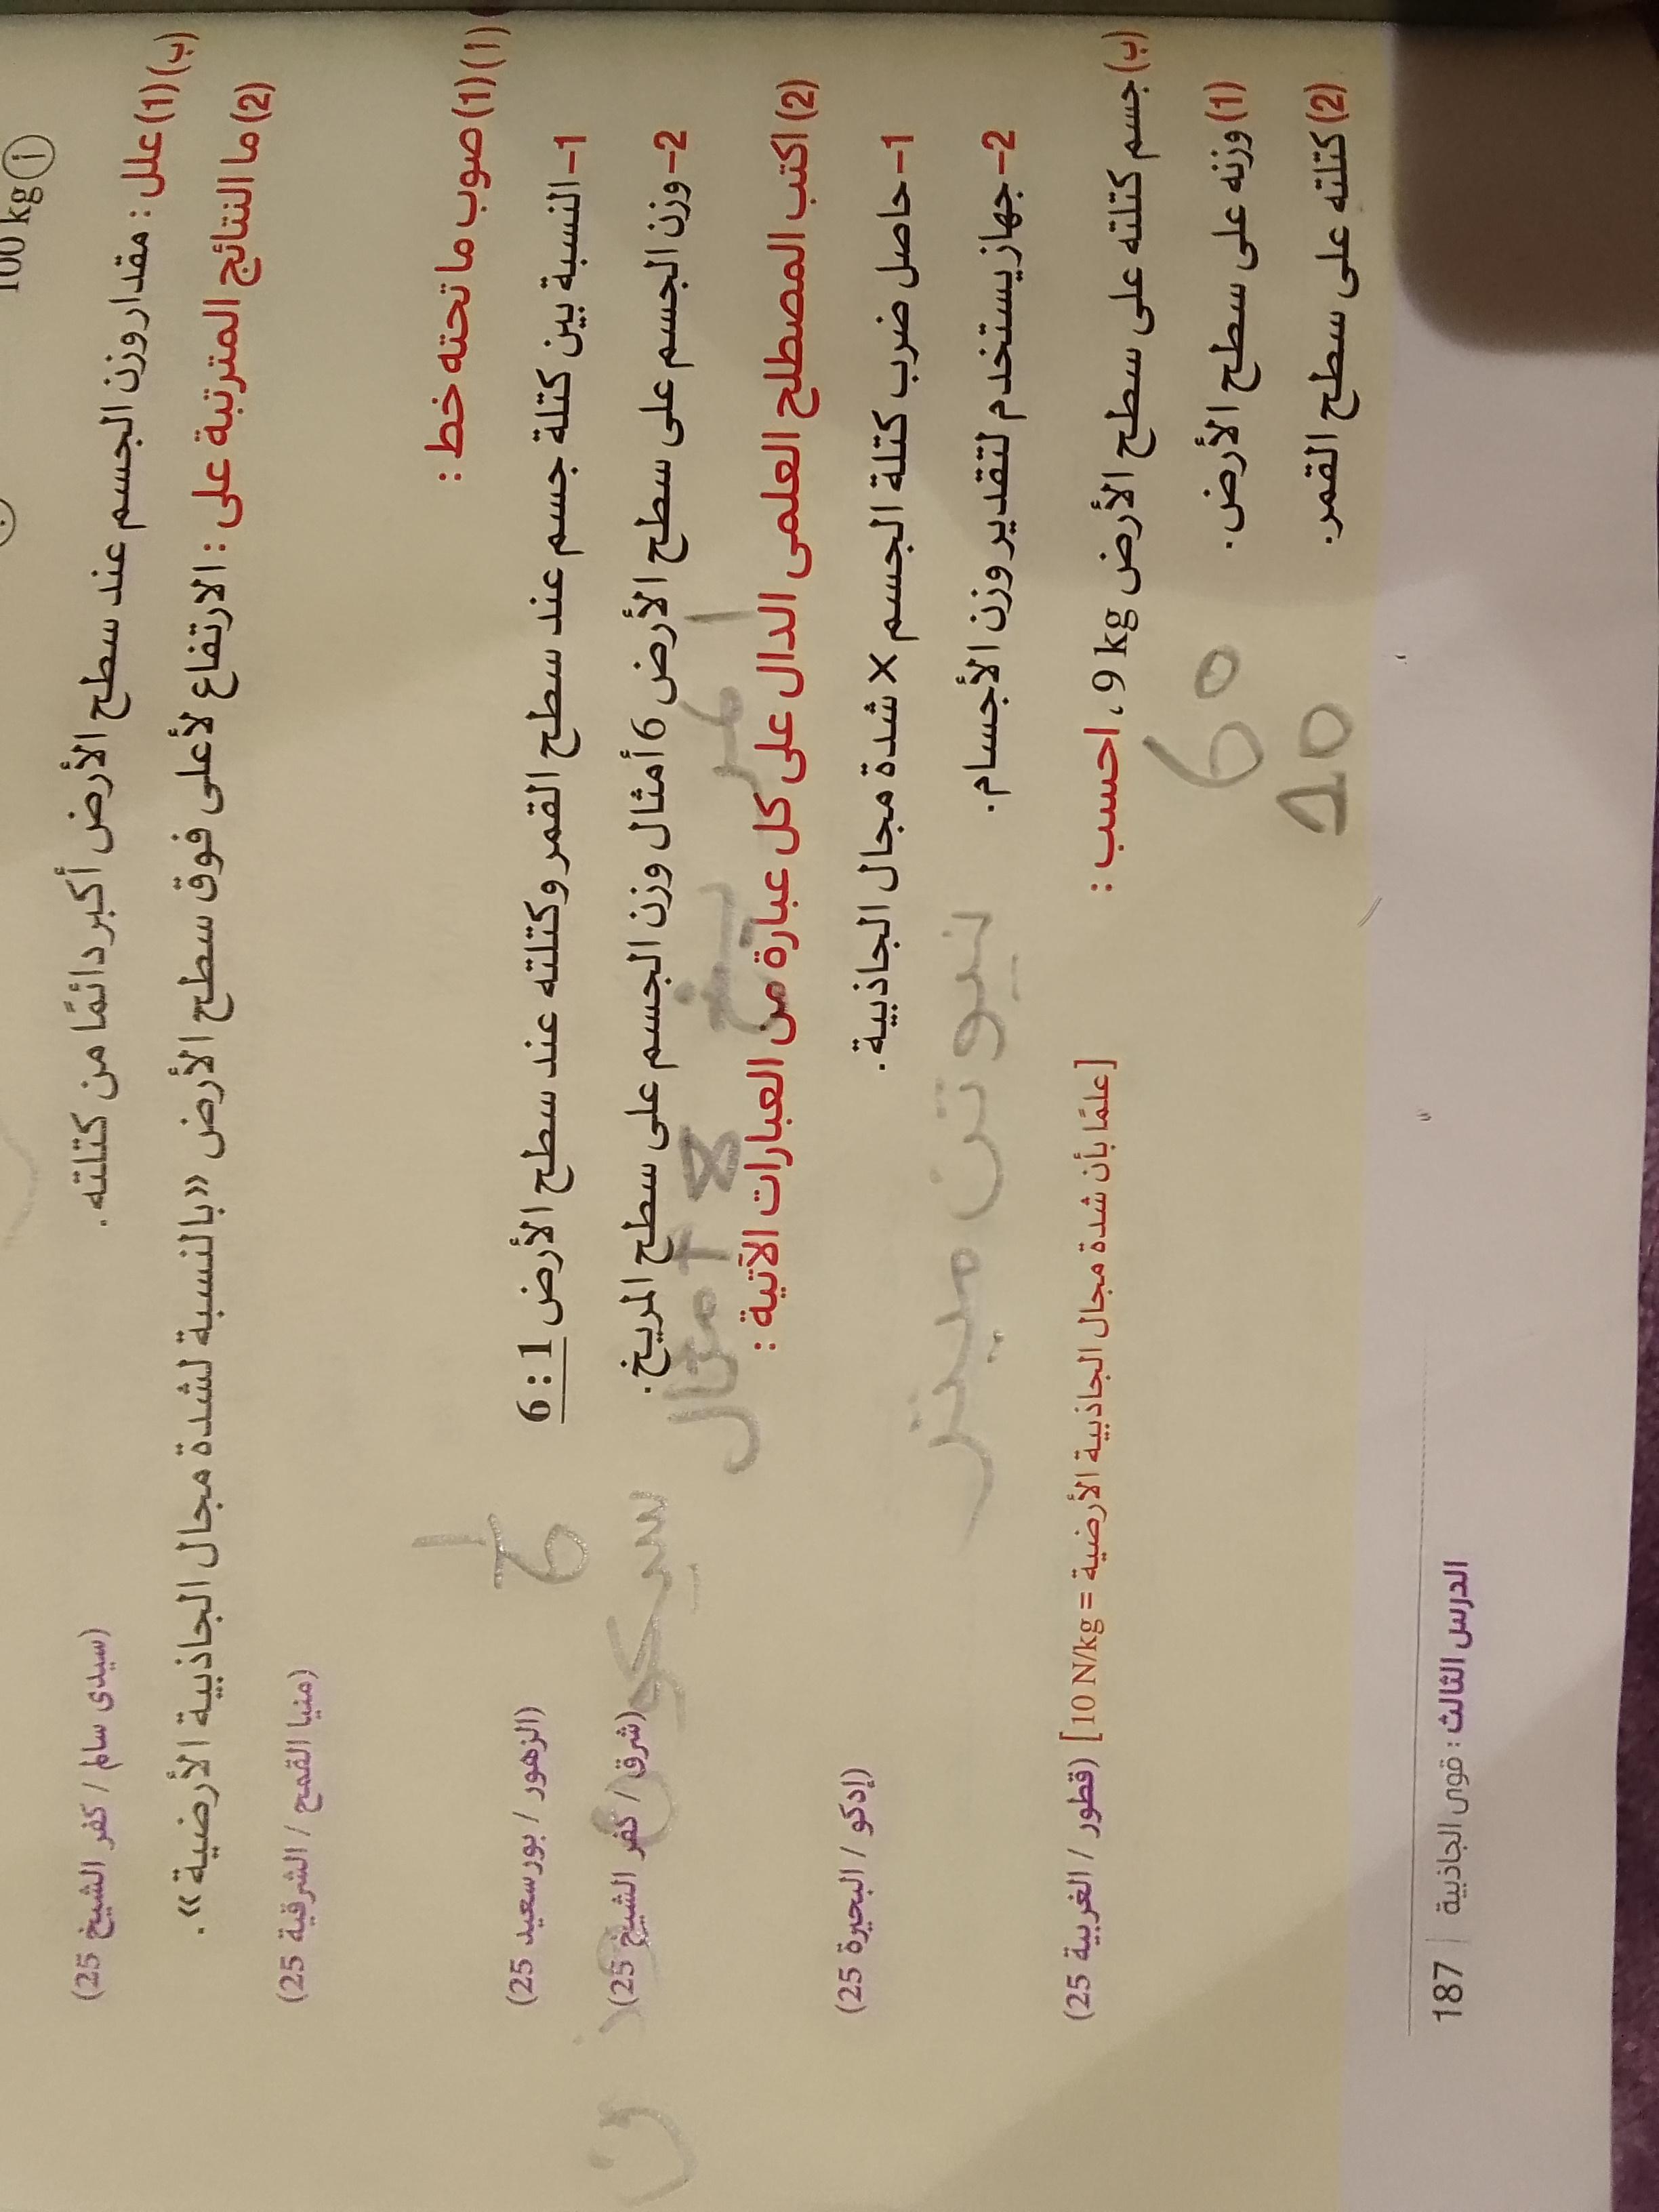 100 kg أ
(ب) (1) علل : مقدار وزن الجسم عند سطح الأرض أكبر دائمًا من كتلته. (سيدى سالم / كفر الشيخ 25)
(2) ما النتائج المترتبة على : الارتفاع لأعلى فوق سطح الأرض «بالنسبة لشدة مجال الجاذبية الأرضية».
(منيا القمح / الشرقية 25)
(1) (ا) صوب ما تحته خط :
1- النسبة بين كتلة جسم عند سطح القمر وكتلته عند سطح الأرض 6 : 1 (الزهور / بورسعيد 25)
1
6
2- وزن الجسم على سطح الأرض 6 أمثال وزن الجسم على سطح المريخ. (شرق / كفر الشيخ 25)
أمثال
(2) اكتب المصطلح العلمى الدال على كل عبارة من العبارات الآتية :
1- حاصل ضرب كتلة الجسم × شدة مجال الجاذبية. (إدكو / البحيرة 25)
2- جهاز يستخدم لتقدير وزن الأجسام.
نيوتن ميتر
(ب) جسم كتلته على سطح الأرض 9 kg ، احسب : [علمًا بأن شدة مجال الجاذبية الأرضية = 10 N/kg] (قطور / الغربية 25)
(1) وزنه على سطح الأرض. 60
(2) كتلته على سطح القمر. 10
187 | الدرس الثالث : قوى الجاذبية